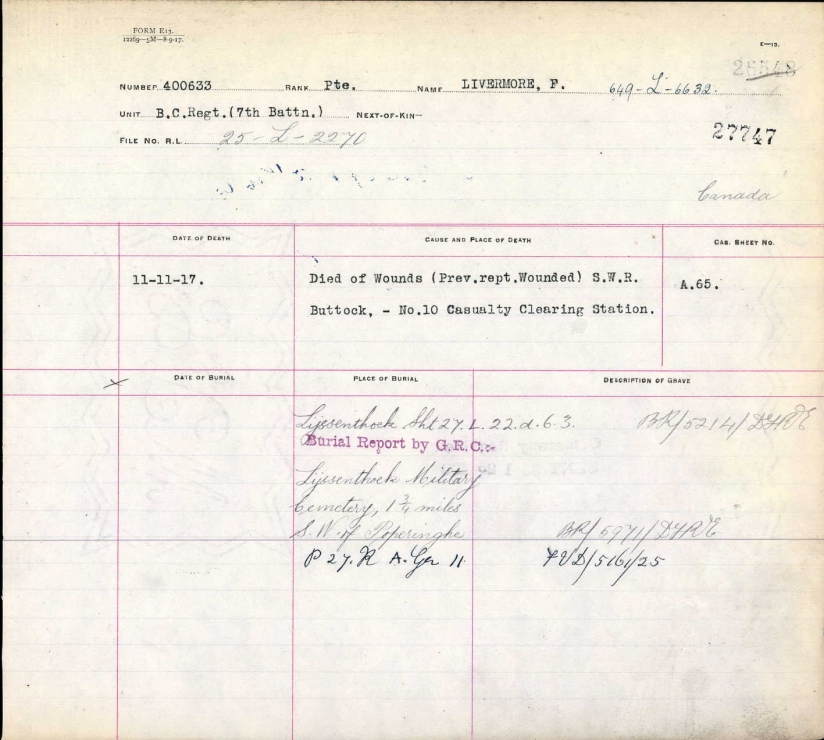 FORM E13.
12269—5M—8-9-17.
E—13.
26548
NUMBER 400633 RANK Pte. NAME LIVERMORE, F. 649-L-6632.
UNIT B.C.Regt.(7th Battn.) NEXT-OF-KIN—
27747
FILE No. R.L. 25-L-2270
Canada
DATE OF DEATH CAUSE AND PLACE OF DEATH CAS. SHEET NO.
11-11-17. Died of Wounds (Prev.rept.Wounded) S.W.R. A.65.
Buttock, - No.10 Casualty Clearing Station.
DATE OF BURIAL PLACE OF BURIAL DESCRIPTION OF GRAVE
Lijssenthoek Sht 27. L. 22. d. 6. 3. BR/5214/DGRE
Burial Report by G.R.C.:-
Lijssenthoek Military
Cemetery, 1 3/4 miles
S. W. of Poperinghe BR/5971/DGRE
P 27. R A. Gr 11 FVD/5161/25